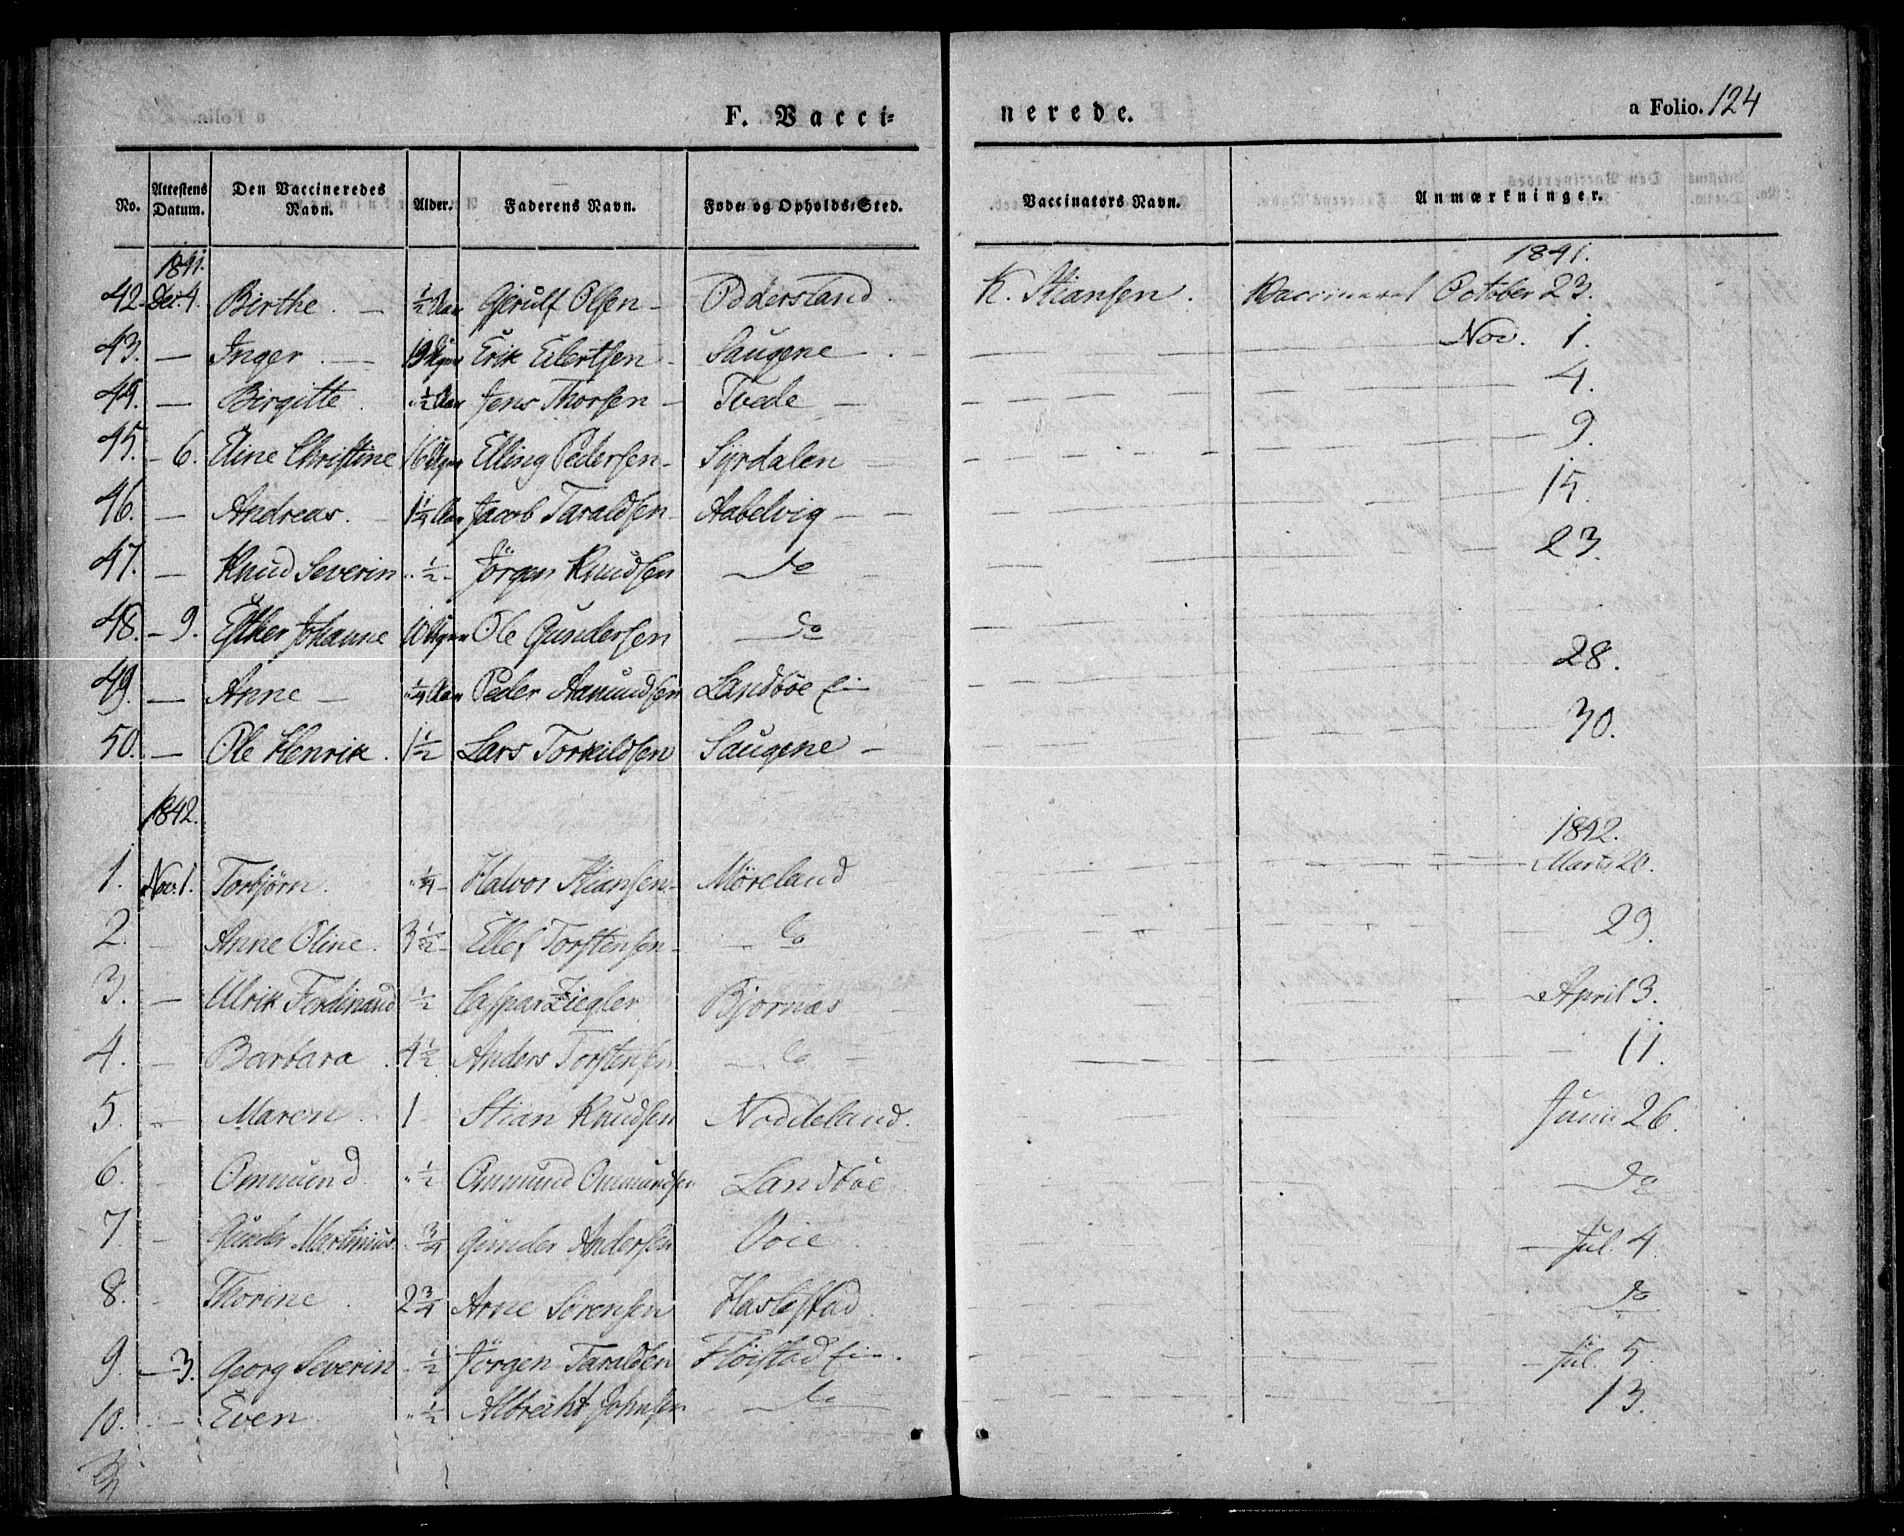 F. Vacci= nerede. a Folio. 124
No. Attestens Datum. Den Vaccineredes Navn. Alder. Faderens Navn. Føde= og Opholds=Sted. Vaccinators Navn. Anmærkninger.
1841. 1841.
42 Dec. 4. Birthe. — ½ Aar Gjerulf Olsen — Odderstand. K. Stiansen. Vaccineret October 23.
43. — Inger. — 19 Uger Erik Eilertsen — Saugene — Nov. 1.
44. — Birgitte. ½ Aar Jens Thorsen — Tvede — 4.
45. — 6. Eline Christine 16 Uger Elling Pedersen — Syrdalen 9.
46. — Andreas. — 1¼ Aar Jacob Taraldsen — Aabelvig — 15.
47. — Knud Severin ½ — Jörgen Knudsen — do 23.
48. — 9. Esther Johanne 10 Uger Ole Gundersen — do
49. — Anne — ¼ Aar Peder Aamundsen Landböe 28.
50. — Ole Henrik. 1½ Lars Torkildsen Saugene — 30.
1842. 1842.
1. Nov. 1. Torbjörn. ¼ — Halvor Stiansen — Möreland Marts 20.
2. — Anne Oline. 3½ — Ellef Torstensen — do 29.
3. — Ulrik Ferdinand ½ Caspar Ziegler Bjornaas April 3.
4. — Barbara. 4½ Anders Torstensen — do 11.
5. — Maren. 1 — Stian Knudsen Noddeland. Juni 26.
6. — Omund ½ Omund Omundsen Landböe do
7. — Gunder Martinius. ¾ Gunder Andersen Voie — Jul. 4.
8. — Thorine. 2¾ Arne Sörensen Haslestad do
9. — 3. Georg Severin ½ Jörgen Taraldsen Flöistad — Jul. 5.
10. — Even. ½ Albrecht Johnsen — do 13.